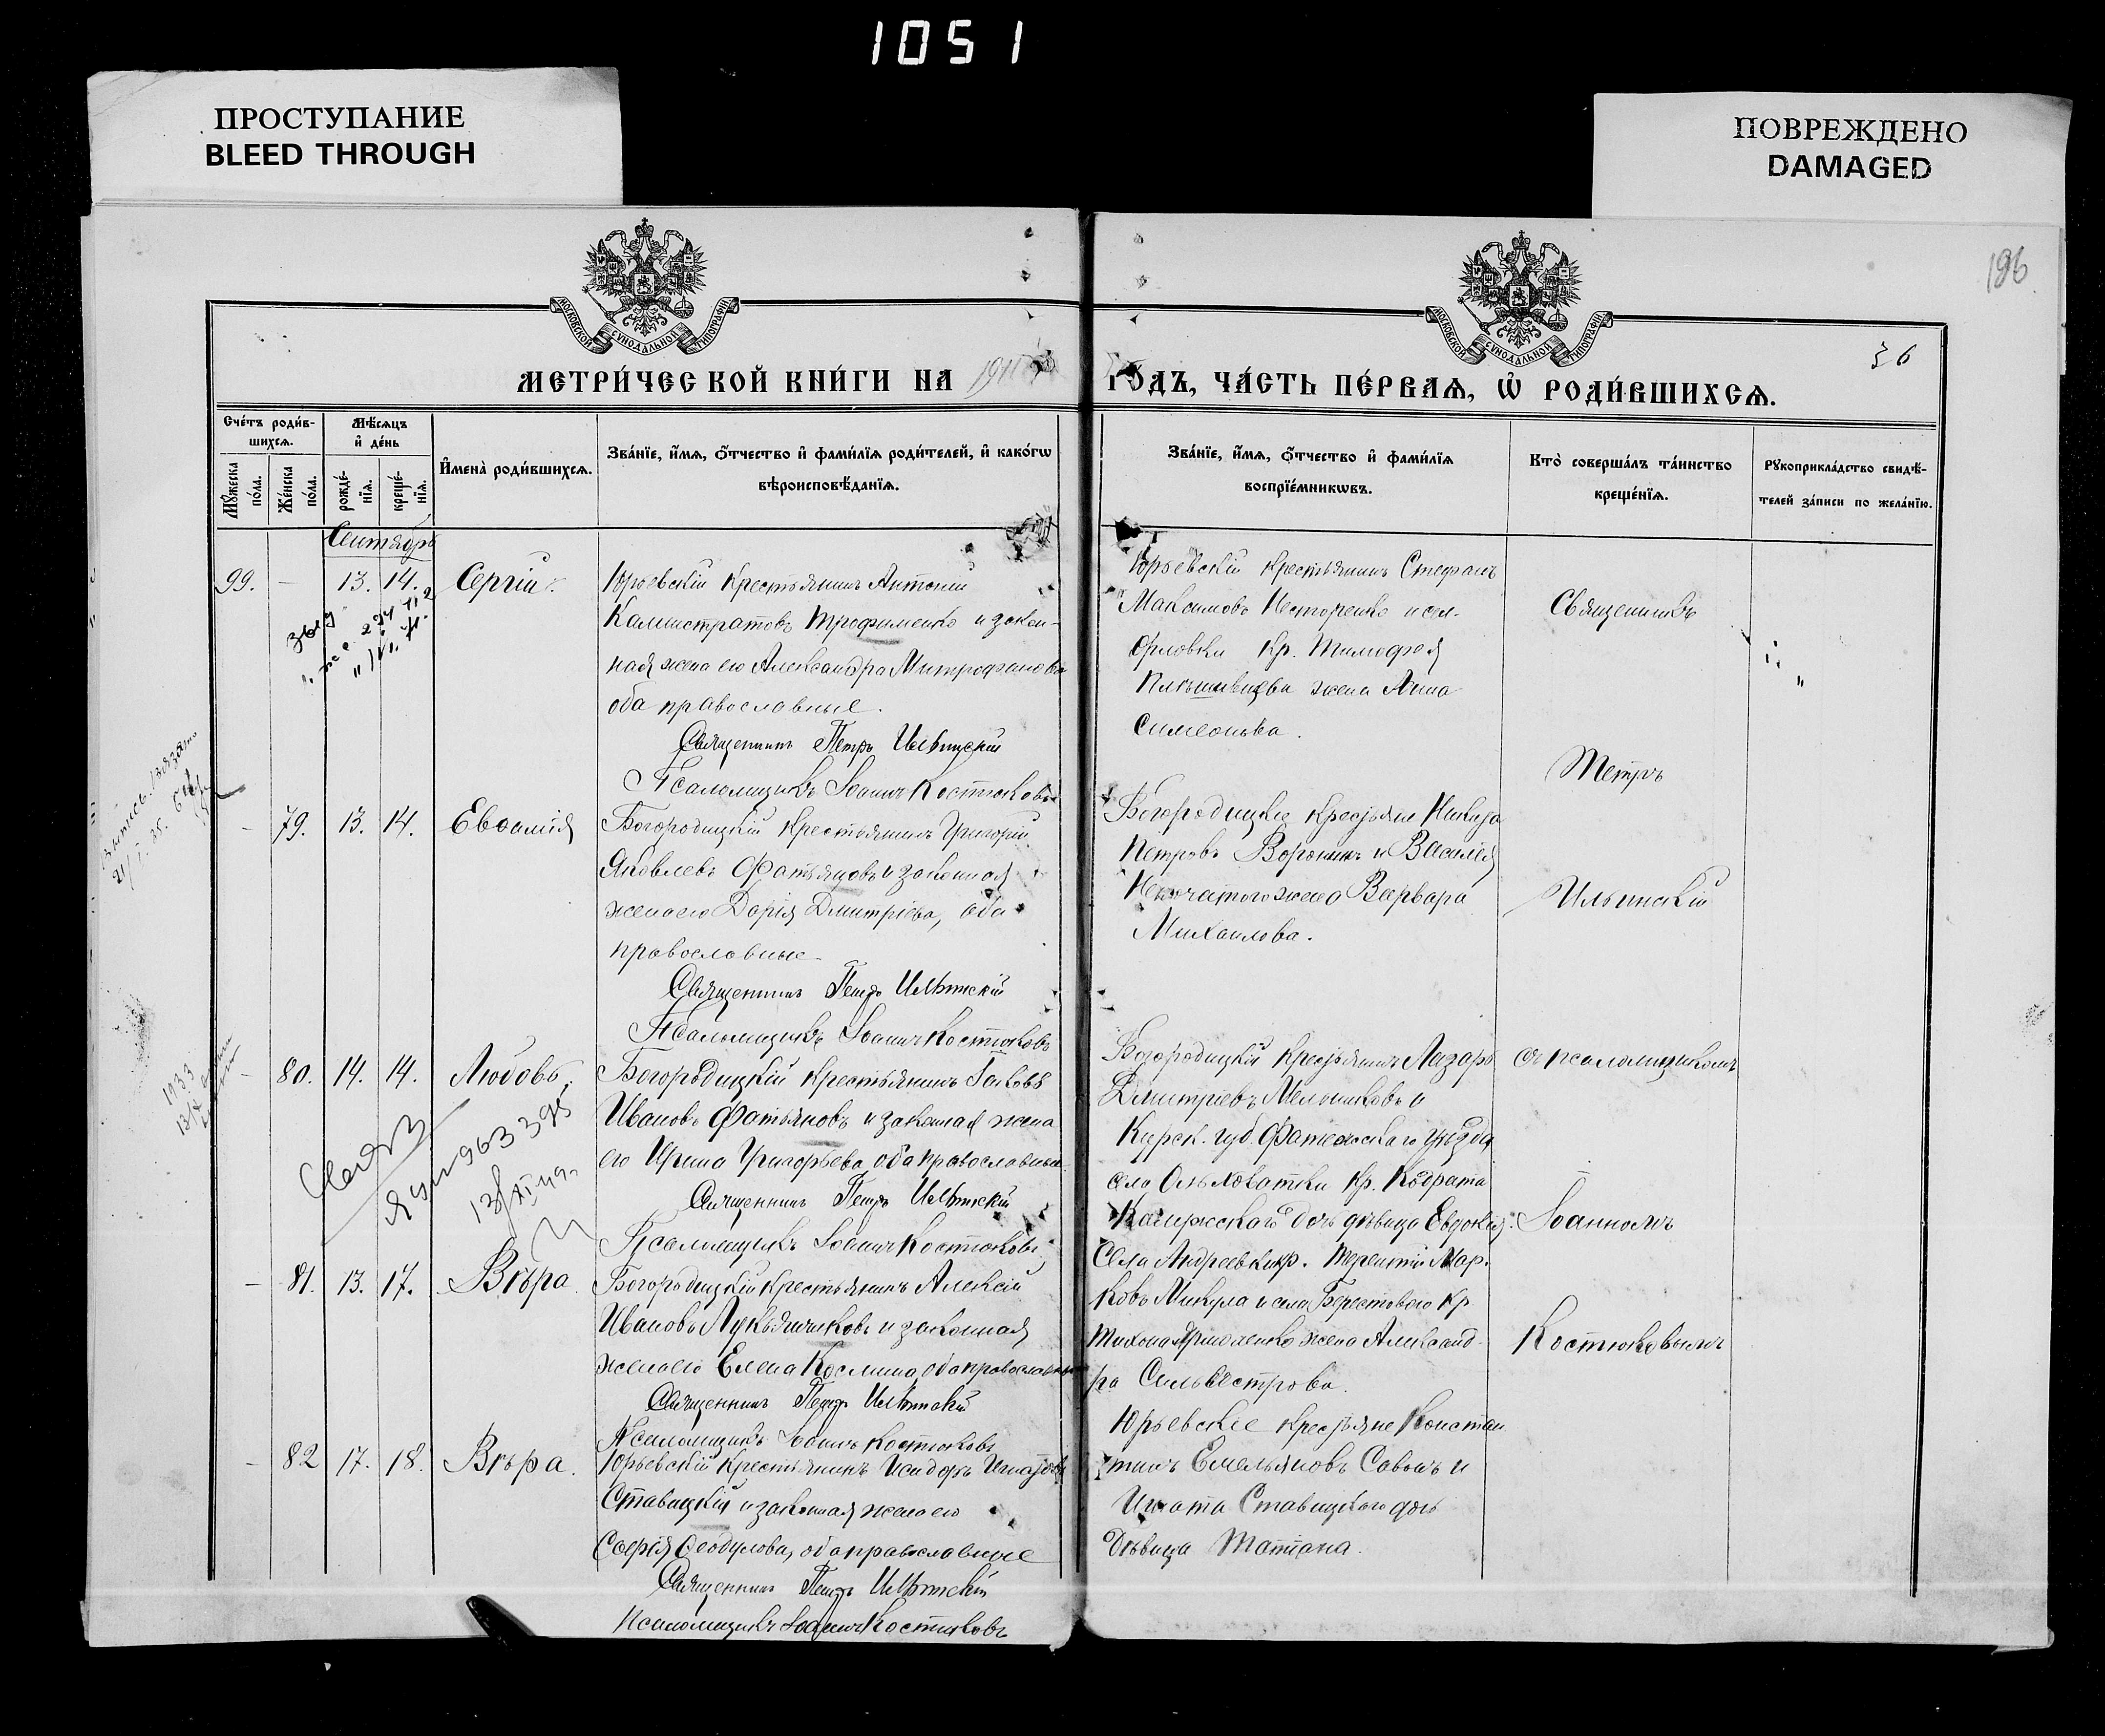 1051
ПРОСТУПАНИЕ
BLEED THROUGH
ПОВРЕЖДЕНО
DAMAGED
196
36
МОСКОВСКОЙ СѴНОДАЛЬНОЙ ТИПОГРАФІИ
МОСКОВСКОЙ СѴНОДАЛЬНОЙ ТИПОГРАФІИ
МЕТРИ́ЧЕСКОЙ КНИ́ГИ НА 1911
ГО́ДЪ, ЧА́СТЬ ПЕ́РВАѦ, Ѡ҆ РОДИ́ВШИХСѦ.
Сче́тъ роди́в-
шихсѧ.
Мѣ́сѧцъ
и҆ де́нь
Мꙋ́жеска по́ла.
Же́нска по́ла.
рожде́-нїѧ.
креще́-нїѧ.
И҆мена̀ роди́вшихсѧ.
Зва́нїе, и҆́мѧ, ѻ҆́тчество и҆ фами́лїѧ роди́телей, и҆ како́гѡ
вѣроисповѣ́данїѧ.
Зва́нїе, и҆́мѧ, ѻ҆́тчество и҆ фами́лїѧ
воспрїе́мникѡвъ.
Кто̀ соверша́лъ та́инство
креще́нїѧ.
Рꙋкоприкла́дство свидѣ́-
телей за́писи по жела́нїю.
Сентябрь
99. - 13. 14. Сергій.
Юрьевскій крестьянинъ Антоній
Каллистратовъ Трофименко и закон-
ная жена его Александра Митрофанова
оба православные.
Священникъ Петръ Ильинскій
Псаломщикъ Іоаннъ Костюковъ
Юрьевскій крестьянинъ Стефанъ
Максимовъ Несторенко и сел.
Орловки кр. Тимофея
жена Анна
Симеонова.
Священникъ
Петръ
Ильинскій
съ псаломщикомъ
Іоанномъ
Костюковымъ
- 79. 13. 14. Евѳимія
Богородицкій крестьянинъ Григорій
Яковлевъ Фатьяновъ и законная
жена его Дарія Дмитріева, оба
православные
Священникъ Петръ Ильинскій
Псаломщикъ Іоаннъ Костюковъ
Богородицкіе крестьяне
Петровъ Воронинъ и Василія
жена Варвара
Михаилова.
- 80. 14. 14. Любовь.
Богородицкій крестьянинъ Іаковъ
Ивановъ Фатьяновъ и законная жена
его Ирина Григорьева, оба православные
Священникъ Петръ Ильинскій
Псаломщикъ Іоаннъ Костюковъ
Богородицкій крестьянинъ Лазарь
Дмитріевъ Мельниковъ и
Курск. губ. Фатежскаго уѣзда
села Ольховатки кр. Кодрата
дочь дѣвица Евдокія.
- 81. 13. 17. Вѣра.
Богородицкій крестьянинъ Алексій
Ивановъ Лукьянчиковъ и законная
жена его Елена Космина, оба православные
Священникъ Петръ Ильинскій
Псаломщикъ Іоаннъ Костюковъ
Села Андреевки кр. Терентій Мар-
ковъ Микула и села Берестового кр.
Тихона жена Александ-
ра Сильвестрова.
- 82 17. 18. Вѣра.
Юрьевскій крестьянинъ Исидоръ Игнатовъ
Ставицкій и законная жена его
Софія Ѳеодулова, оба православные
Священникъ Петръ Ильинскій
Псаломщикъ Іоаннъ Костюковъ
Юрьевскіе крестьяне Констан
тинъ Емельяновъ Савонъ и
Игната Ставицкаго дочь
дѣвица Татіана.